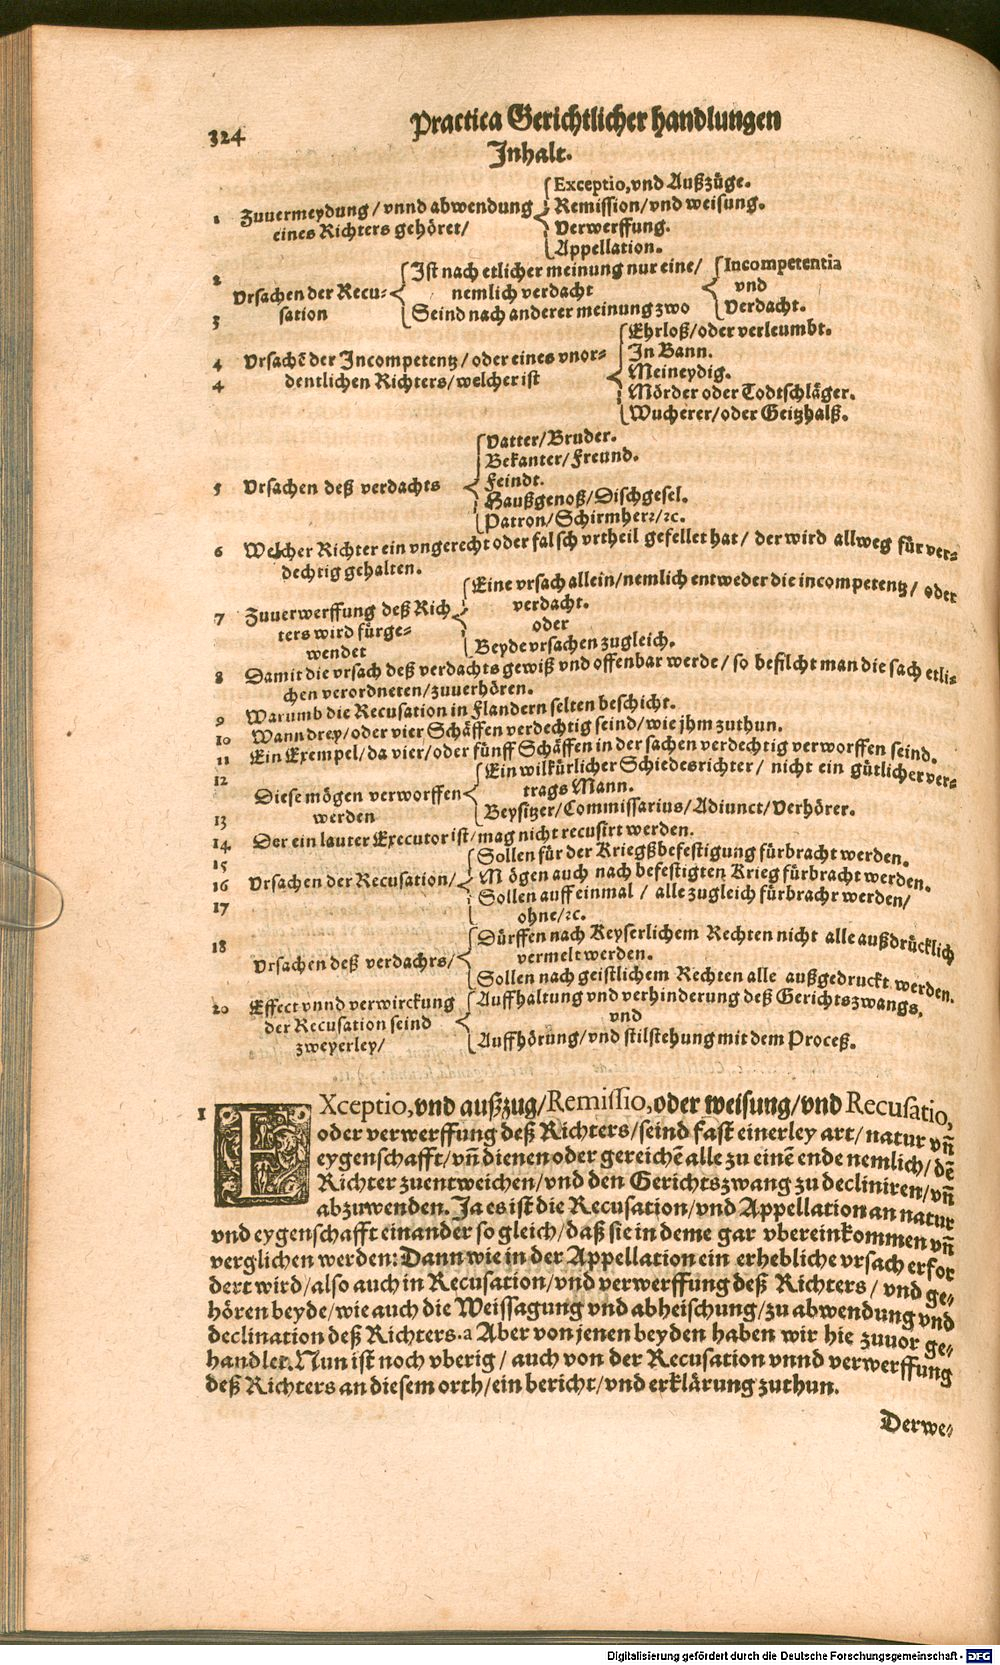 324
Practica Gerichtlicher handlungen
Inhalt.
1 Zuuermeydung / vnnd abwendung
eines Richters gehöret/
Exceptio, vnd Außzüge.
Remission/vnd weisung.
Verwerffung.
Appellation.
2
Vrsachen der Recu-
3 sation
Ist nach etlicher meinung nur eine/
nemlich verdacht
Seind nach anderer meinung zwo
Incompetentia
vnd
Verdacht.
4 Vrsachē der Incompetentz / oder eines vnor-
4 dentlichen Richters/welcher ist
Ehrloß/oder verleumbt.
In Bann.
Meineydig.
Mörder oder Todtschläger.
Wucherer/oder Geitzhalß.
5 Vrsachen deß verdachts
Vatter/Bruder.
Bekanter/Freund.
Feindt.
Haußgenoß/Dischgesel.
Patron/Schirmherꝛ/ꝛc.
6 Welcher Richter ein vngerecht oder falsch vrtheil gefellet hat / der wird allweg für ver-
dechtig gehalten.
7 Zuuerwerffung deß Rich
ters wird fürge-
wendet
Eine vrsach allein/nemlich entweder die incompetentz / oder
verdacht.
oder
Beyde vrsachen zugleich.
8 Damit die vrsach deß verdachts gewiß vnd offenbar werde / so befilcht man die sach etli-
chen verordneten/zuuerhören.
9 Warumb die Recusation in Flandern selten beschicht.
10 Wann drey/oder vier Schäffen verdechtig seind/wie jhm zuthun.
11 Ein Exempel/da vier/oder fünff Schäffen in der sachen verdechtig verworffen seind.
12
Diese mögen verworffen
13 werden
Ein wilkürlicher Schiedesrichter / nicht ein gütlicher ver-
trags Mann.
Beysitzer/Commissarius/Adiunct/Verhörer.
14 Der ein lauter Executor ist/mag nicht recusirt werden.
15
16 Vrsachen der Recusation/
17
Sollen für der Kriegßbefestigung fürbracht werden.
Mögen auch nach befestigten Krieg fürbracht werden.
Sollen auff einmal / alle zugleich fürbrachr werden/
ohne/ꝛc.
18
Vrsachen deß verdachrs/
Dürffen nach Keyserlichem Rechten nicht alle außdrücklich
vermelt werden.
Sollen nach geistlichem Rechten alle außgedruckt werden.
20 Effect vnnd verwirckung
der Recusation seind
zweyerley/
Auffhaltung vnd verhinderung deß Gerichtszwangs,
vnd
Auffhörung/vnd stilstehung mit dem Proceß.
1 EXceptio, vnd außzug/Remissio, oder weisung/vnd Recusatio,
oder verwerffung deß Richters/seind fast einerley art/natur vñ
eygenschafft/vñ dienen oder gereichē alle zu einē ende nemlich/dē
Richter zuentweichen/vnd den Gerichtszwang zu decliniren/vñ
abzuwenden. Ja es ist die Recusation/vnd Appellation an natur
vnd eygenschafft einander so gleich/daß sie in deme gar vbereinkommen vñ
verglichen werden: Dann wie in der Appellation ein erhebliche vrsach erfor
dert wird/also auch in Recusation/vnd verwerffung deß Richters / vnd ge-
hören beyde/wie auch die Weissagung vnd abheischung/zu abwendung vnd
declination deß Richters.a Aber von jenen beyden haben wir hie zuuor ge-
handlet. Nun ist noch vberig / auch von der Recusation vnnd verwerffung
deß Richters an diesem orth/ein bericht/vnd erklärung zuthun.
Derwe-
Digitalisierung gefördert durch die Deutsche Forschungsgemeinschaft - DFG